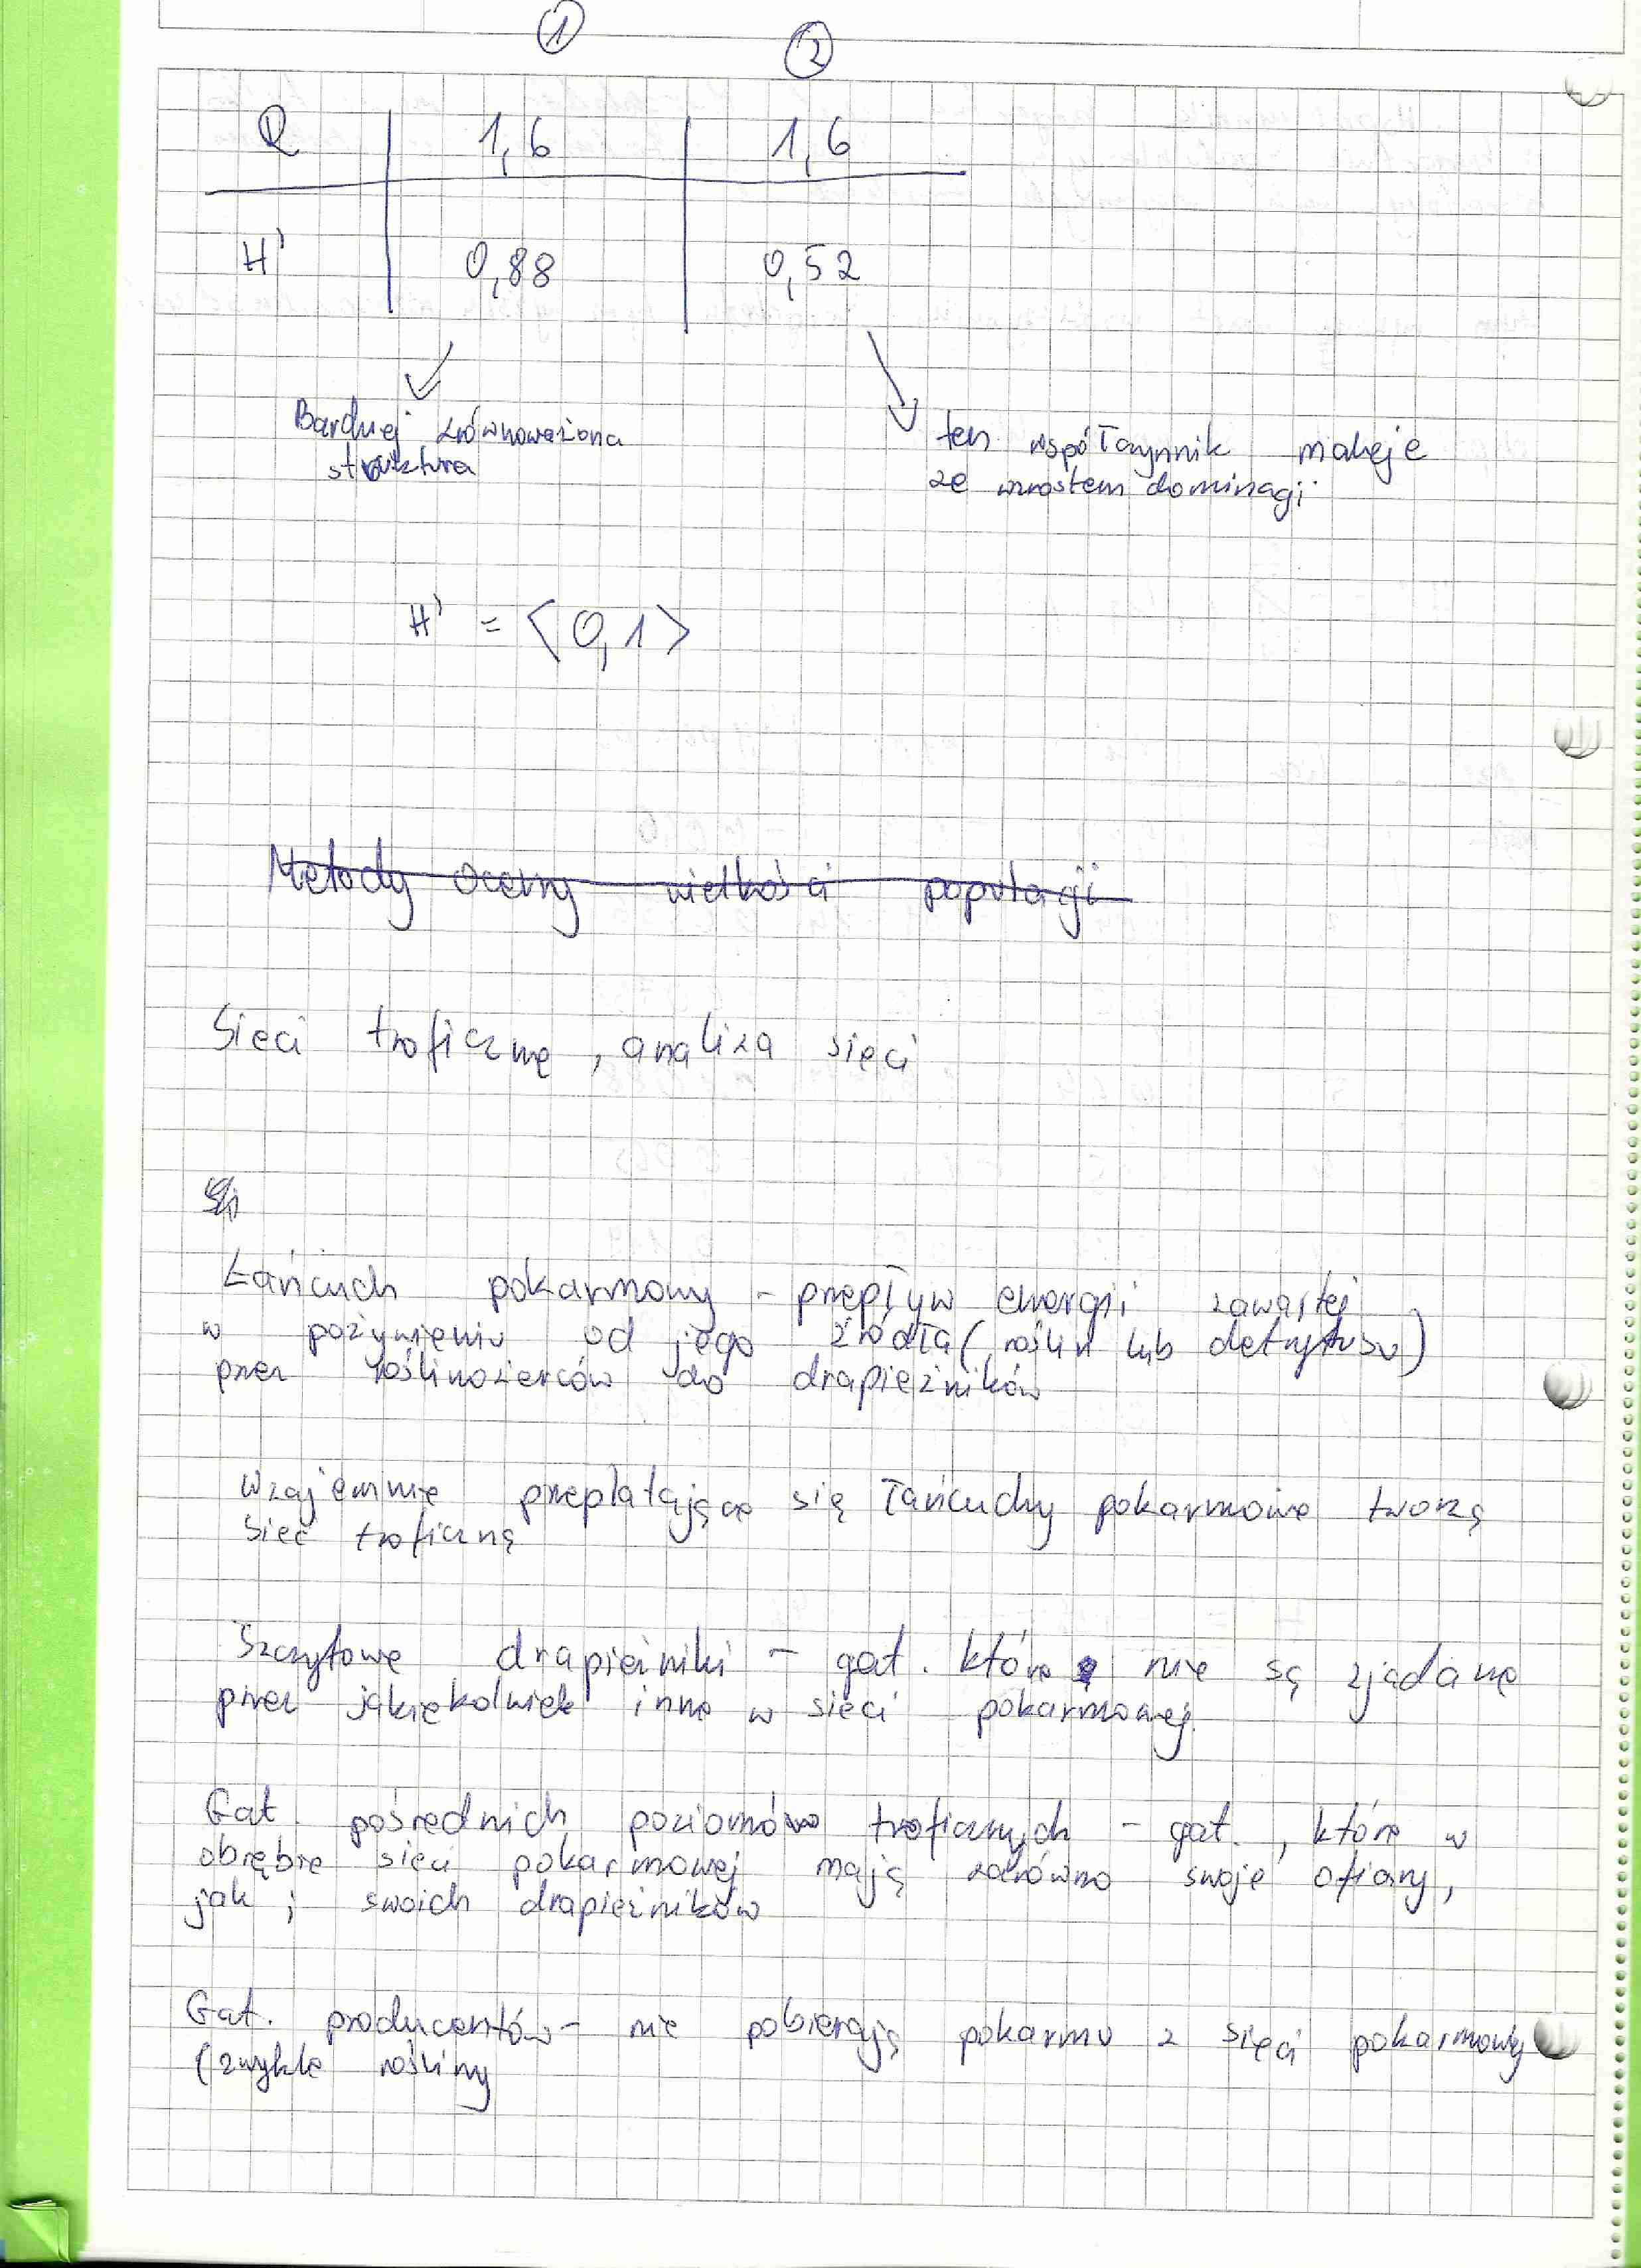 1 2
Q 1,6 1,6
H' 0,88 0,52
Bardziej zrównoważona
struktura
ten współczynnik maleje
ze wzrostem dominacji
H' = <0,1>
Metody oceny wielkości populacji
Sieci troficzne, analiza sieci
Łańcuch pokarmowy - przepływ energii zawartej
w pożywieniu od jego źródła (roślin lub detrytusu)
przez roślinożerców do drapieżników
Wzajemnie przeplatające się łańcuchy pokarmowe tworzą
sieć troficzną
Szczytowe drapieżniki - gat. które nie są zjadane
przez jakiekolwiek inne w sieci pokarmowej.
Gat. pośrednich poziomów troficznych - gat., które w
obrębie sieci pokarmowej mają zarówno swoje ofiary,
jak i swoich drapieżników
Gat. producentów - nie pobierają pokarmu z sieci pokarmowej
(zwykle rośliny